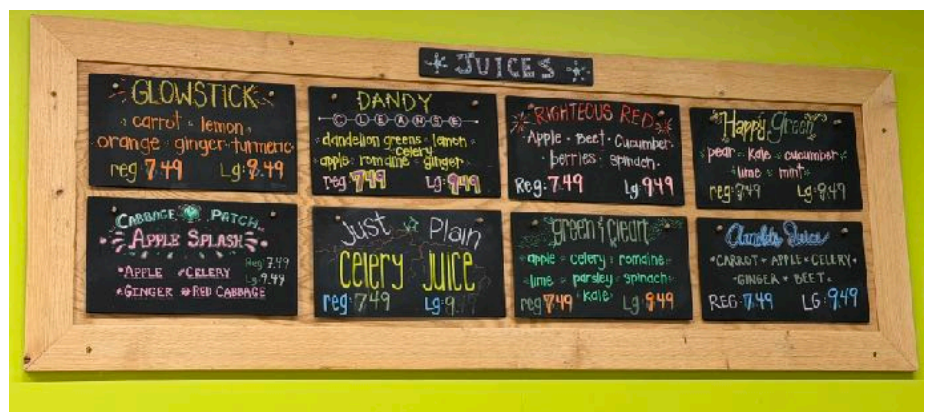 JUICES
GLOWSTICK
carrot • lemon
orange • ginger • turmeric
reg 7.49 Lg: 9.49
DANDY
CLEANSE
dandelion greens • lemon
celery
apple • romaine • ginger
reg 7.49 Lg: 9.49
RIGHTEOUS RED
Apple • Beet • Cucumber
berries • Spinach
Reg: 7.49 Lg 9.49
Happy Green
pear • Kale • cucumber
lime • mint
reg: 7.49 Lg: 9.49
CABBAGE PATCH
APPLE SPLASH
Reg 7.49
•APPLE •CELERY
Lg 9.49
•GINGER •RED CABBAGE
Just Plain
Celery Juice
reg: 7.49 Lg: 9.49
green & clean
apple • celery • romaine
lime • parsley • spinach
• Kale •
reg 7.49 Lg: 9.49
Juice
•CARROT • APPLE • CELERY•
•GINGER • BEET•
REG: 7.49 LG: 9.49